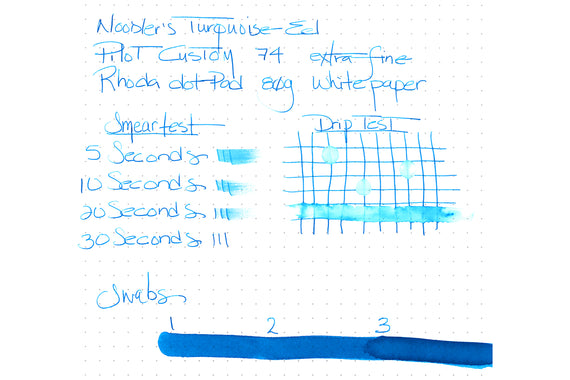 Noodler's Turquoise-Eel
Pilot Custom 74 extra fine
Rhodia dot Pad 80g white paper
Smear test
Drip Test
5 Seconds
10 Seconds
20 Seconds
30 Seconds
Swabs
1 2 3